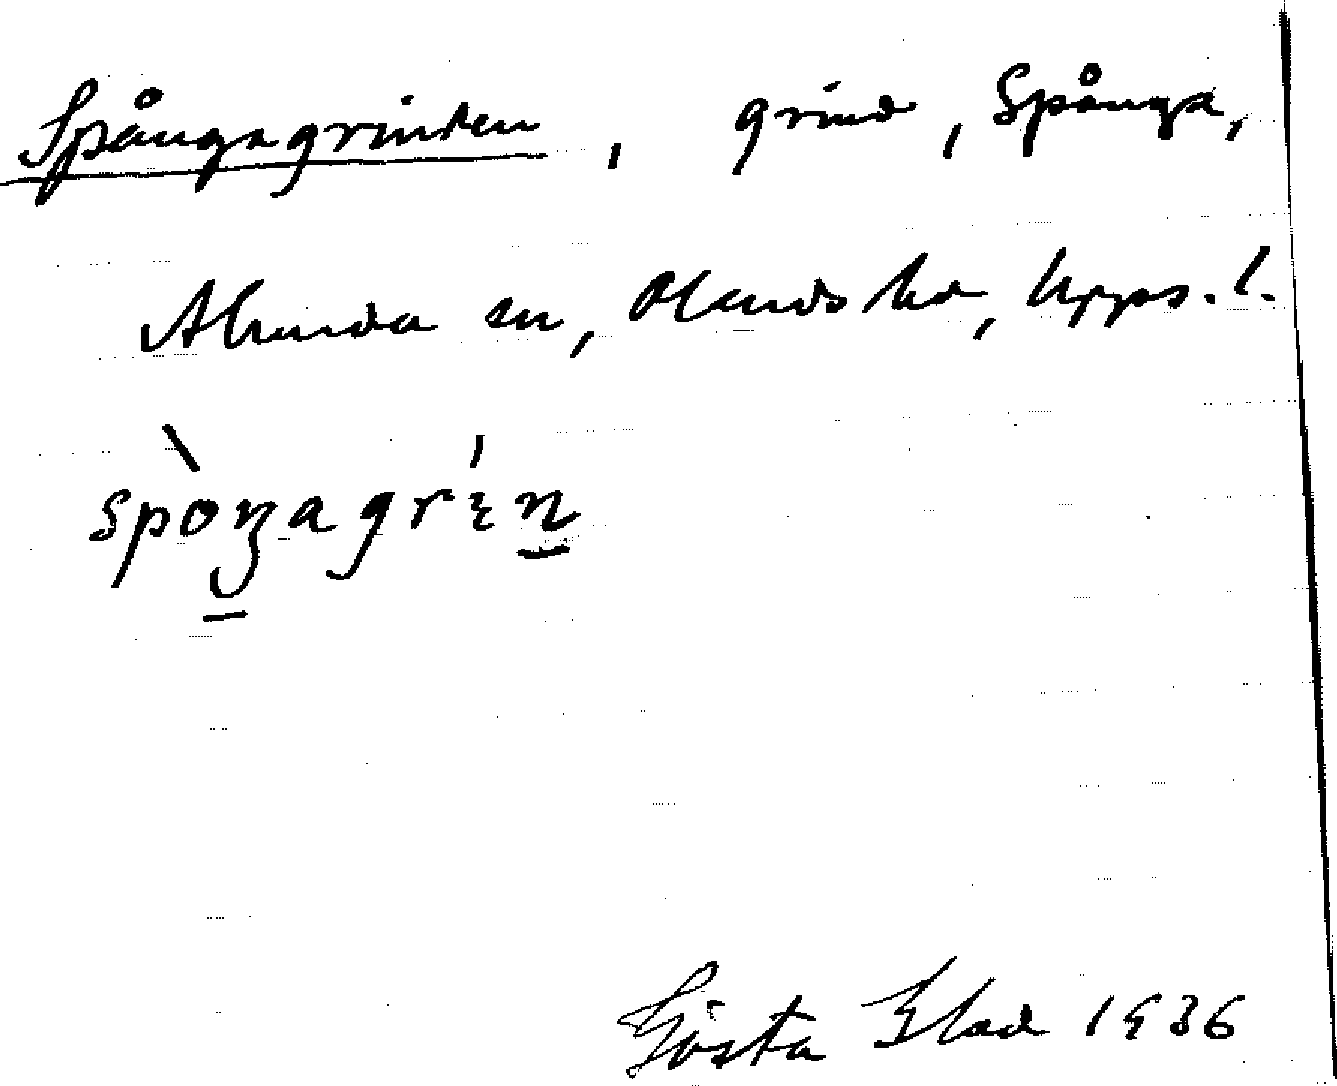 Spångagrinden, grind, Spånga,
Alunda sn, Olands hd, Upps. l.
spòŋagrín
Gösta Blad 1936